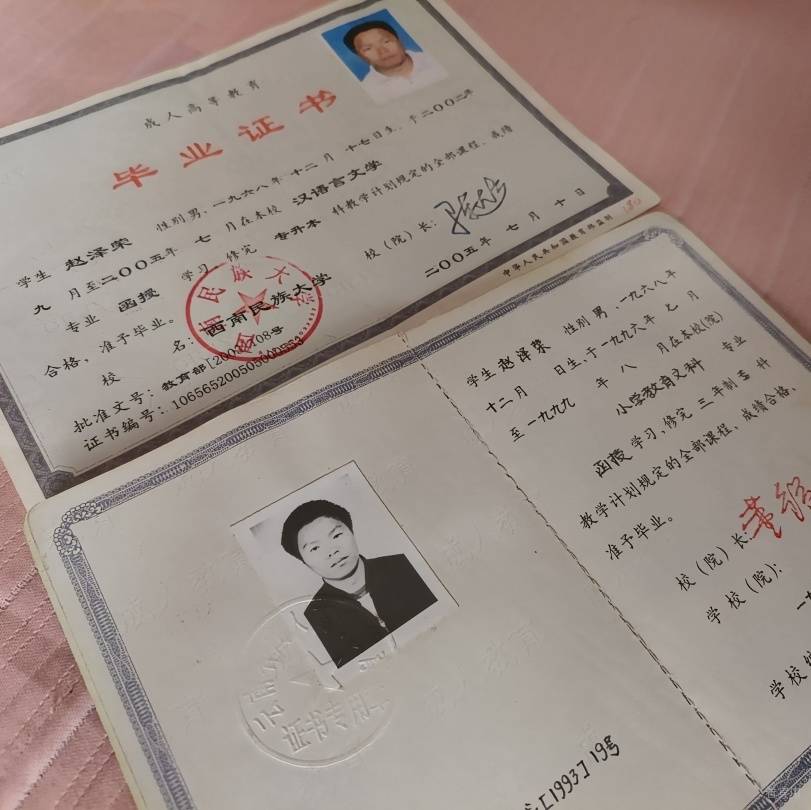 成人高等教育
毕业证书
学生 赵泽荣 性别 男，一九六八年 十二月 十七日生，于二〇〇二年
九 月至二〇〇五年 七 月在本校 汉语言文学
专业 函授 学习，修完 专升本 科教学计划规定的全部课程，成绩
合格，准予毕业。
校 名：西南民族大学
校（院）长：
批准文号：教育部[200 108号
证书编号：10656520050500
二〇〇五年 七 月 十 日
中华人民共和国教育部监制
西南民族大学
学生 赵泽荣 性别 男，一九六八年
十二月 日生，于一九九六年 七 月
至一九九九 年 八 月在本校(院)
小学教育文科 专业
函授 学习，修完 三年制 专 科
教学计划规定的全部课程，成绩合格，
准予毕业。
校（院）长：
学校（院）：
[1993]19号